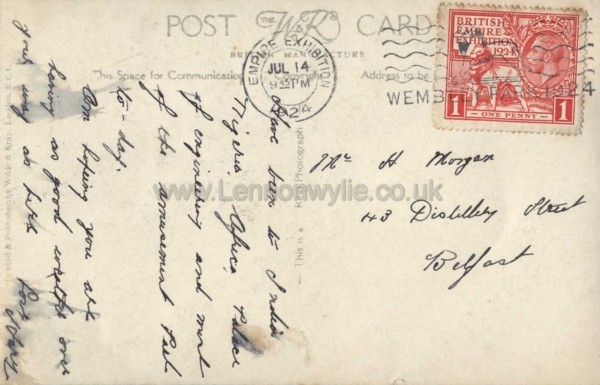 POST CARD
THE W&K
SERIES
BRITISH MANUFACTURE
This Space for Communication
Copyright.
Address to be
EMPIRE EXHIBITION
JUL 14
9 32 PM
1924
WEMBLEY PARK 1924
BRITISH
EMPIRE
EXHIBITION
1924
1 ONE PENNY 1
Have been to India
Nigeria Africa, Palace
of engineering and most
of the amusement Park
to-day.
Am hoping you are
having as good weather over
your way as here
Love
Mr H Morgan
43 Distillery Street
Belfast
This is a Real Photograph
Printed & Published by Wildt & Kray, London, E.C.1.
www.Lennonwylie.co.uk